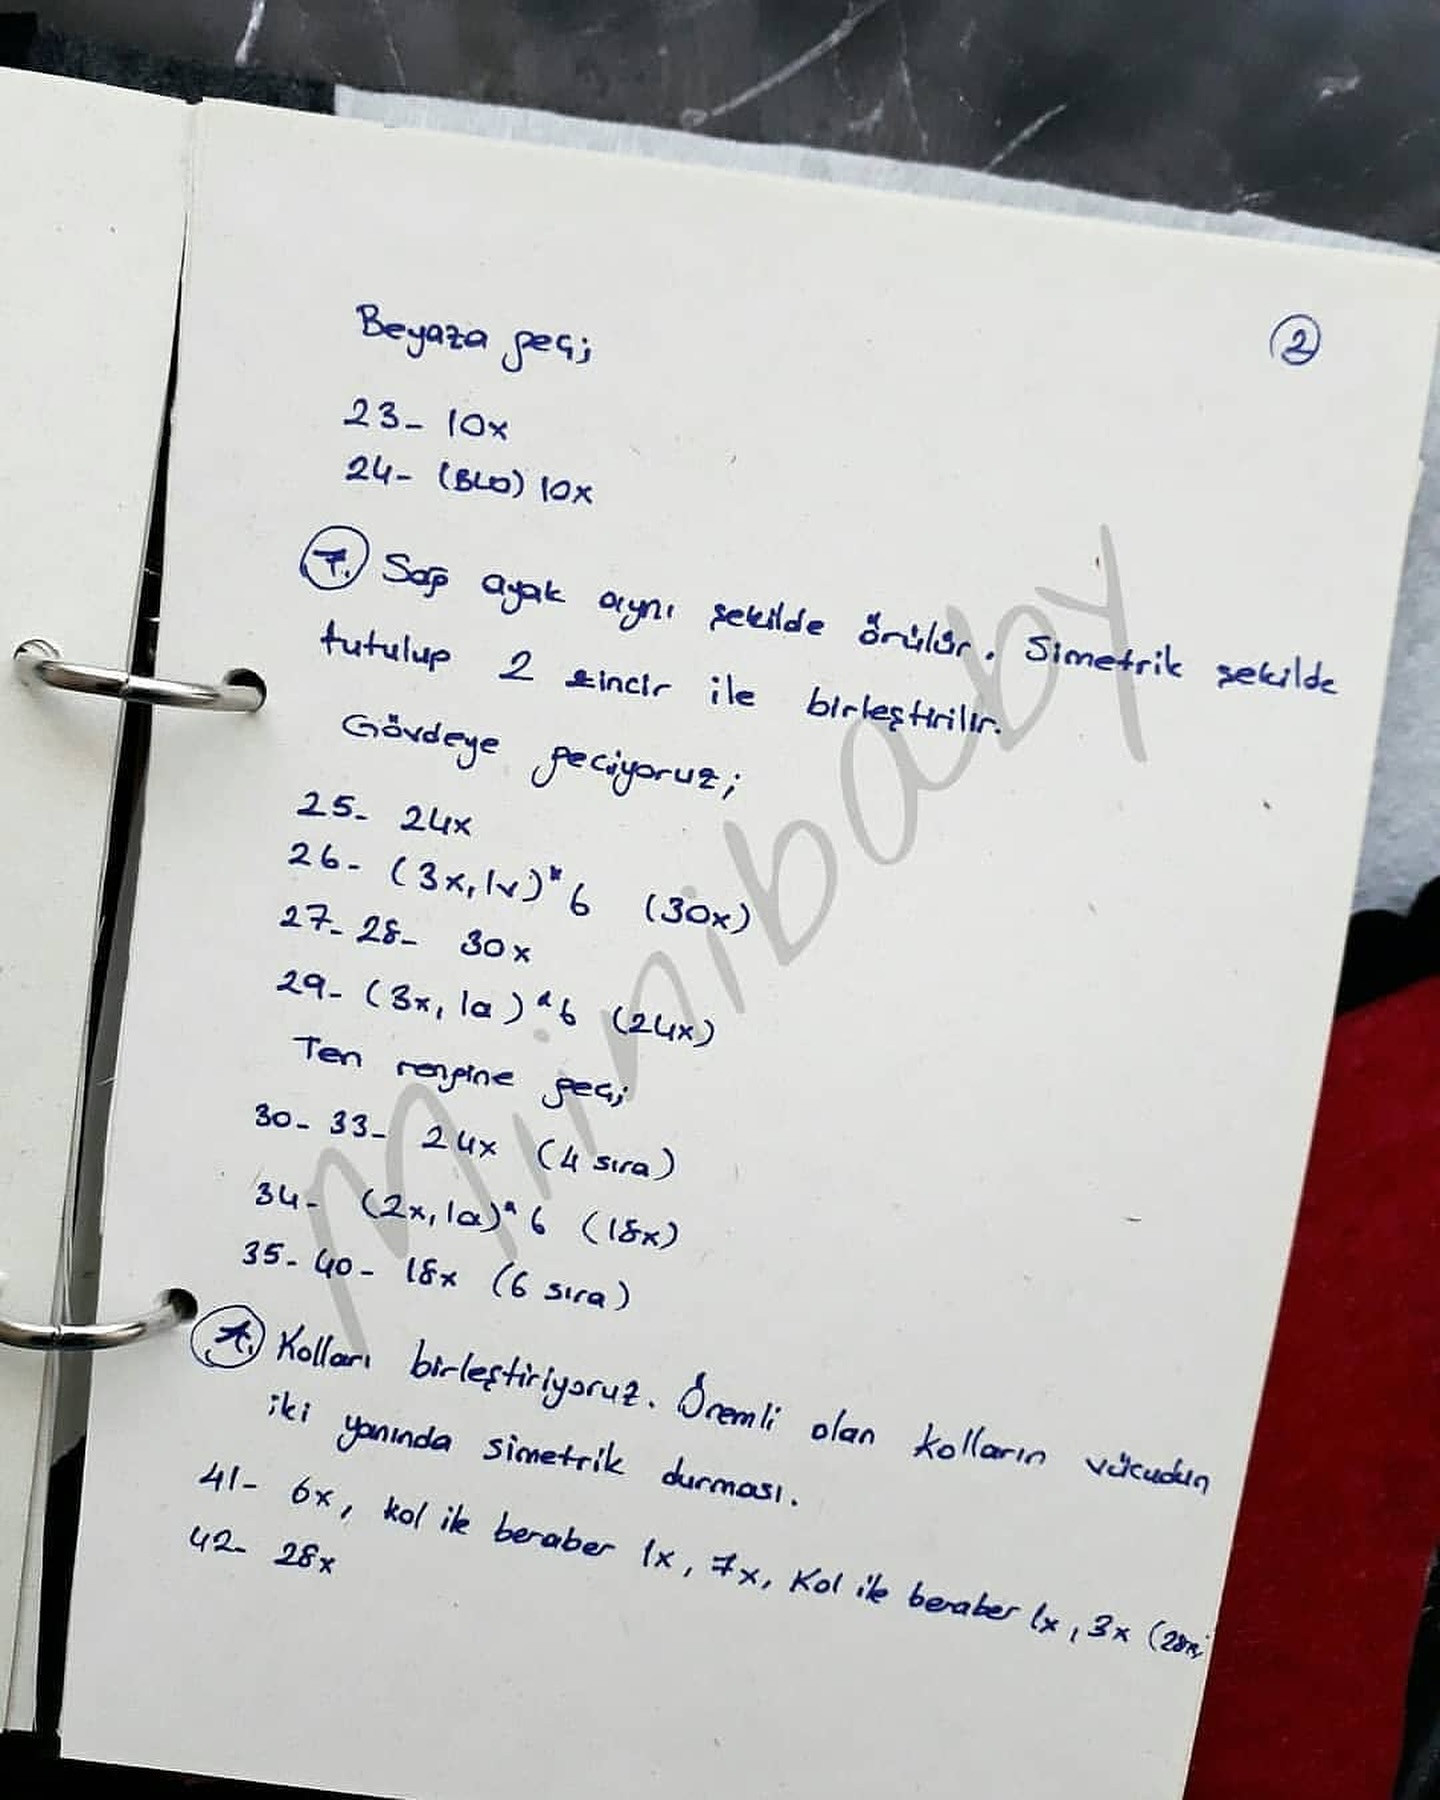 2
Beyaza geç;
23- 10x
24- (BLO) 10x
*. Sağ ayak aynı şekilde örülür. Simetrik şekilde
tutulup 2 zincir ile birleştirilir.
Gövdeye geçiyoruz;
25- 24x
26- (3x, 1v)*6 (30x)
27- 28- 30x
29- (3x, 1a)*6 (24x)
Ten rengine geç;
30- 33- 24x (4 sıra)
34- (2x, 1a)*6 (18x)
35- 40- 18x (6 sıra)
*. Kolları birleştiriyoruz. Önemli olan kolların vücudun
iki yanında simetrik durması.
41- 6x, kol ile beraber 1x, 7x, Kol ile beraber 1x, 3x
42- 28x
Miinibaby